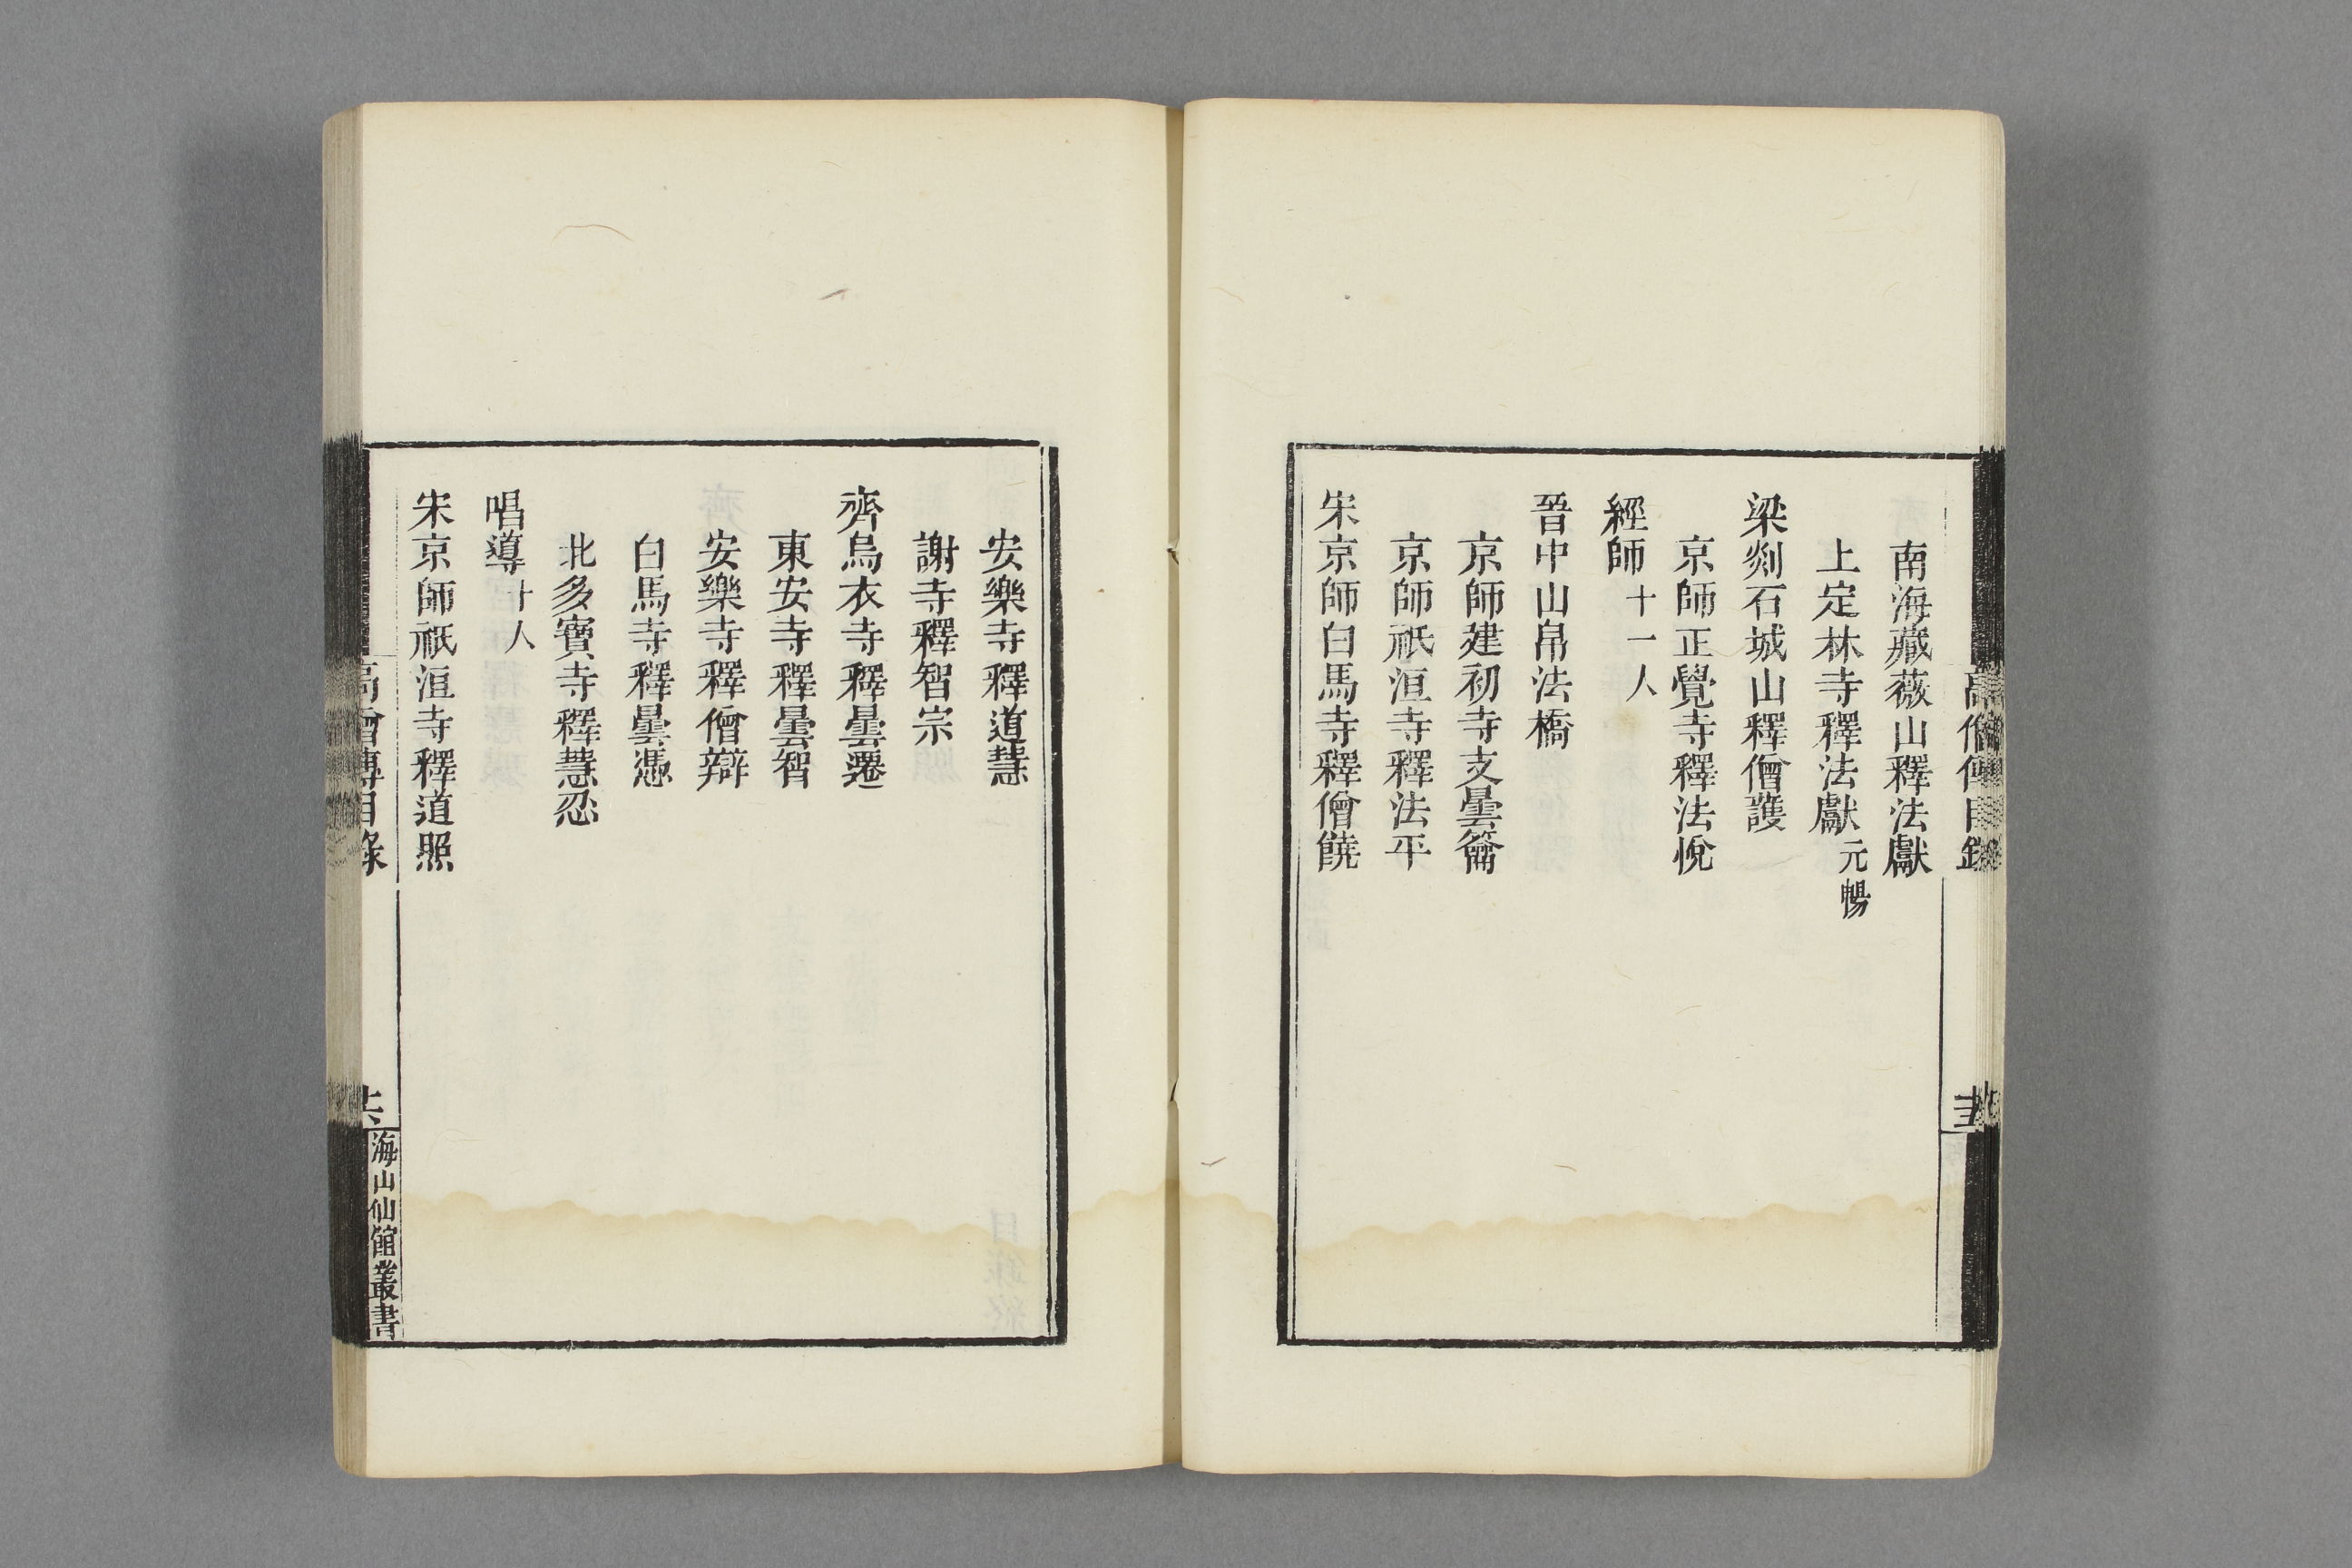 高僧傳目錄
南海藏薇山釋法獻
上定林寺釋法獻 元暢
梁剡石城山釋僧護
京師正覺寺釋法悅
經師 十一人
晉中山帛法橋
京師建初寺支曇籥
京師祇洹寺釋法平
宋京師白馬寺釋僧饒
安樂寺釋道慧
謝寺釋智宗
齊烏衣寺釋曇遷
東安寺釋曇智
安樂寺釋僧辯
白馬寺釋曇憑
北多寶寺釋慧忍
唱導 十人
宋京師祇洹寺釋道照
高僧傳目錄
海山仙館叢書